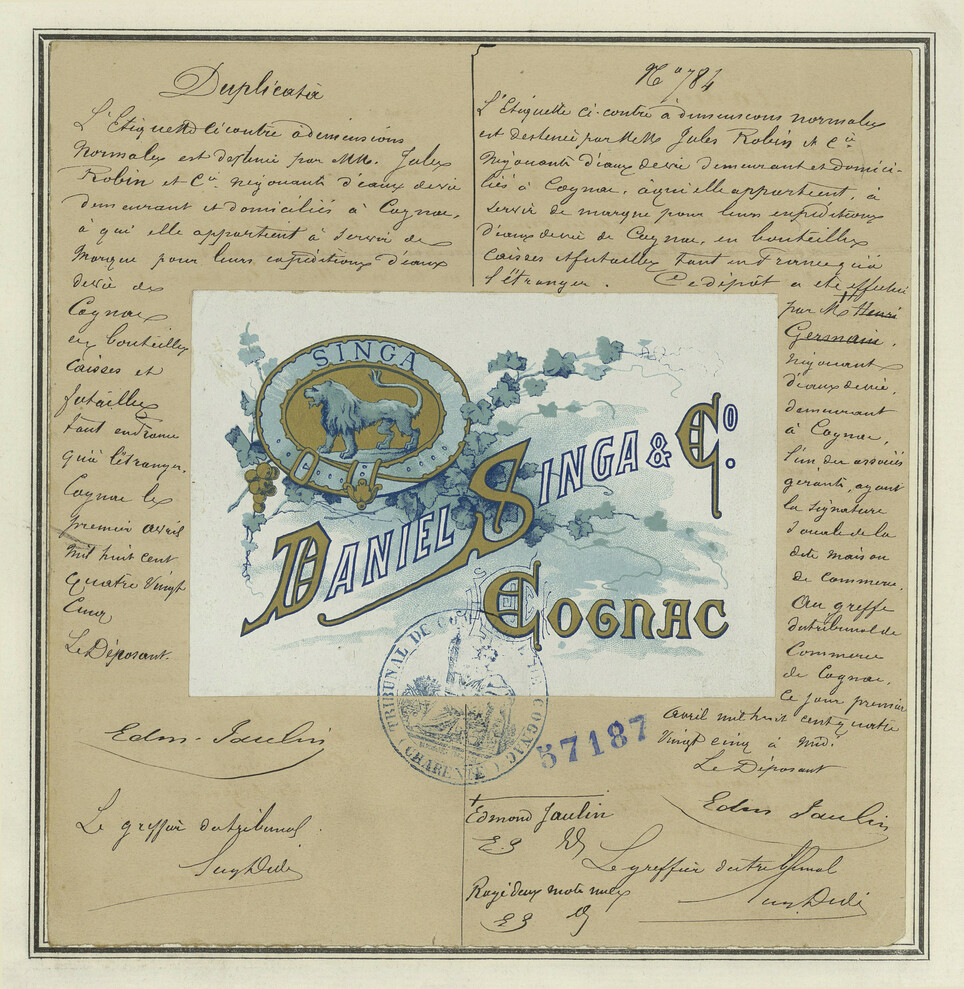 Duplicata
L'Etiquette ci-contre à dimensions
Normales est destinée par MM. Jules
Robin et Cie. négociants d'eaux de vie
demeurant et domiciliés à Cognac,
à qui elle appartient à servir de
Marque pour leurs expéditions d'eaux
de vie de
Cognac
en bouteilles
Caisses et
futailles
tant en France
qu'à l'étranger.
Cognac le
premier avril
mil huit cent
quatre vingt
Cinq
Le Déposant.
Edm. Jaulin
Le greffier du tribunal.
No 784
L'Etiquette ci-contre à dimensions normales
est destinée par MM. Jules Robin et Cie
Négociants d'eaux de vie demeurant et domici-
liés à Cognac, à qui elle appartient, à
servir de marque pour leurs expéditions
d'eaux de vie de Cognac, en bouteilles
Caisses et futailles tant en France qu'à
l'étranger. Ce dépôt a été effectué
par M. Henri
Germain,
Négociant
d'eaux de vie,
demeurant
à Cognac,
l'un des associés
gérants, ayant
la signature
sociale de la
dite maison
de Commerce.
Au greffe
du tribunal de
Commerce
de Cognac,
Ce jour premier
avril mil huit cent quatre
vingt cinq à midi.
Le Déposant
Edm. Jaulin
Edmond Jaulin
Le greffier du tribunal
Rayé deux mots nuls
SINGA
DANIEL SINGA & Co.
COGNAC
TRIBUNAL DE COMMERCE DE COGNAC
(CHARENTE)
57187